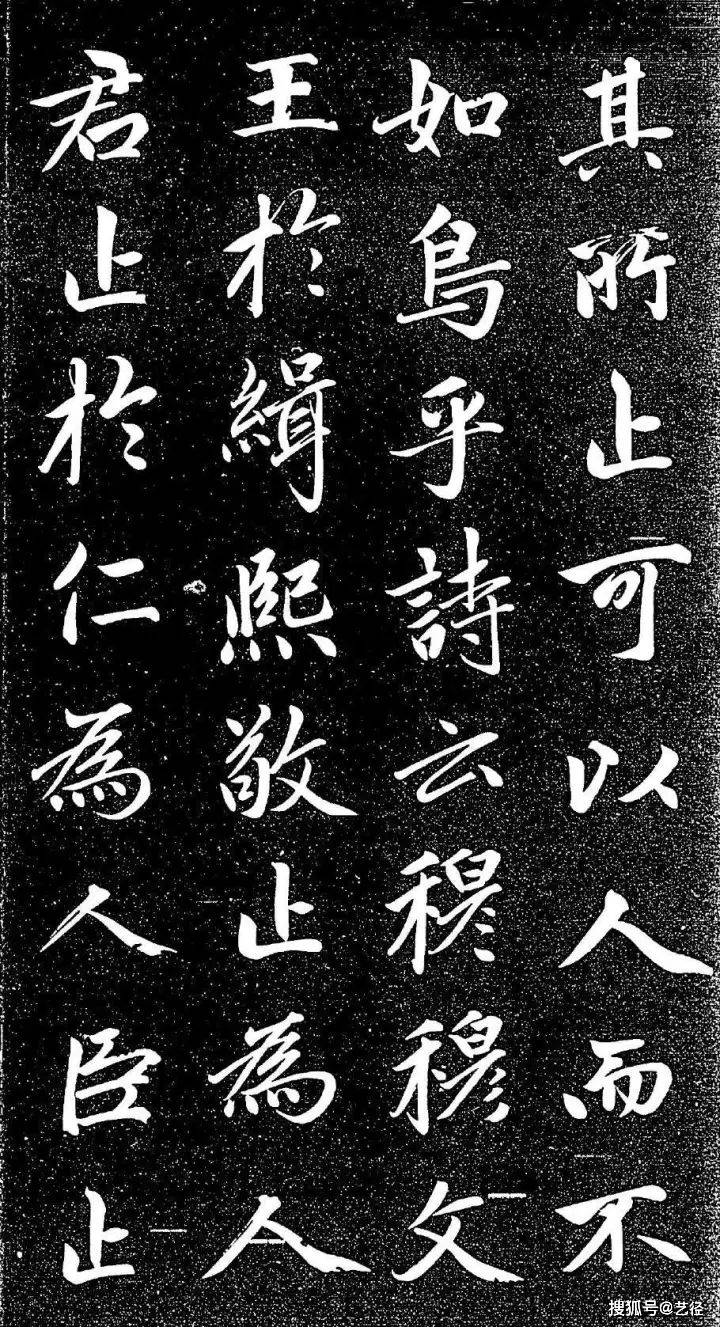 其所止可以人而不
如鳥乎詩云穆穆文
王於緝熙敬止為人
君止於仁為人臣止
搜狐号@艺径